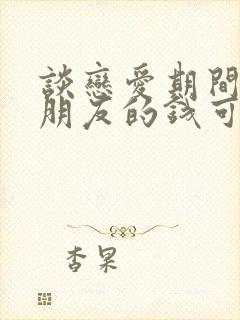 談戀愛期間
朋友的钱可
杏果